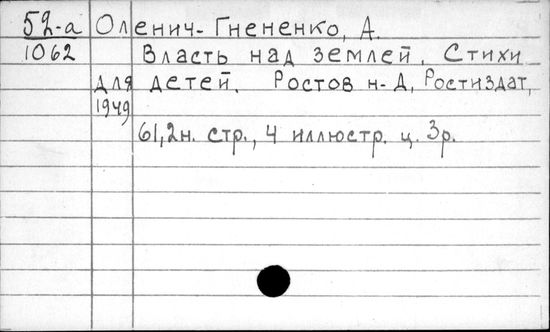 52-а Оленич-Гнененко, А.
1062 Власть над землей. Стихи
для детей. Ростов н-Д, Ростиздат,
1949
61,2н. стр., 4 иллюстр. ц. 3р.